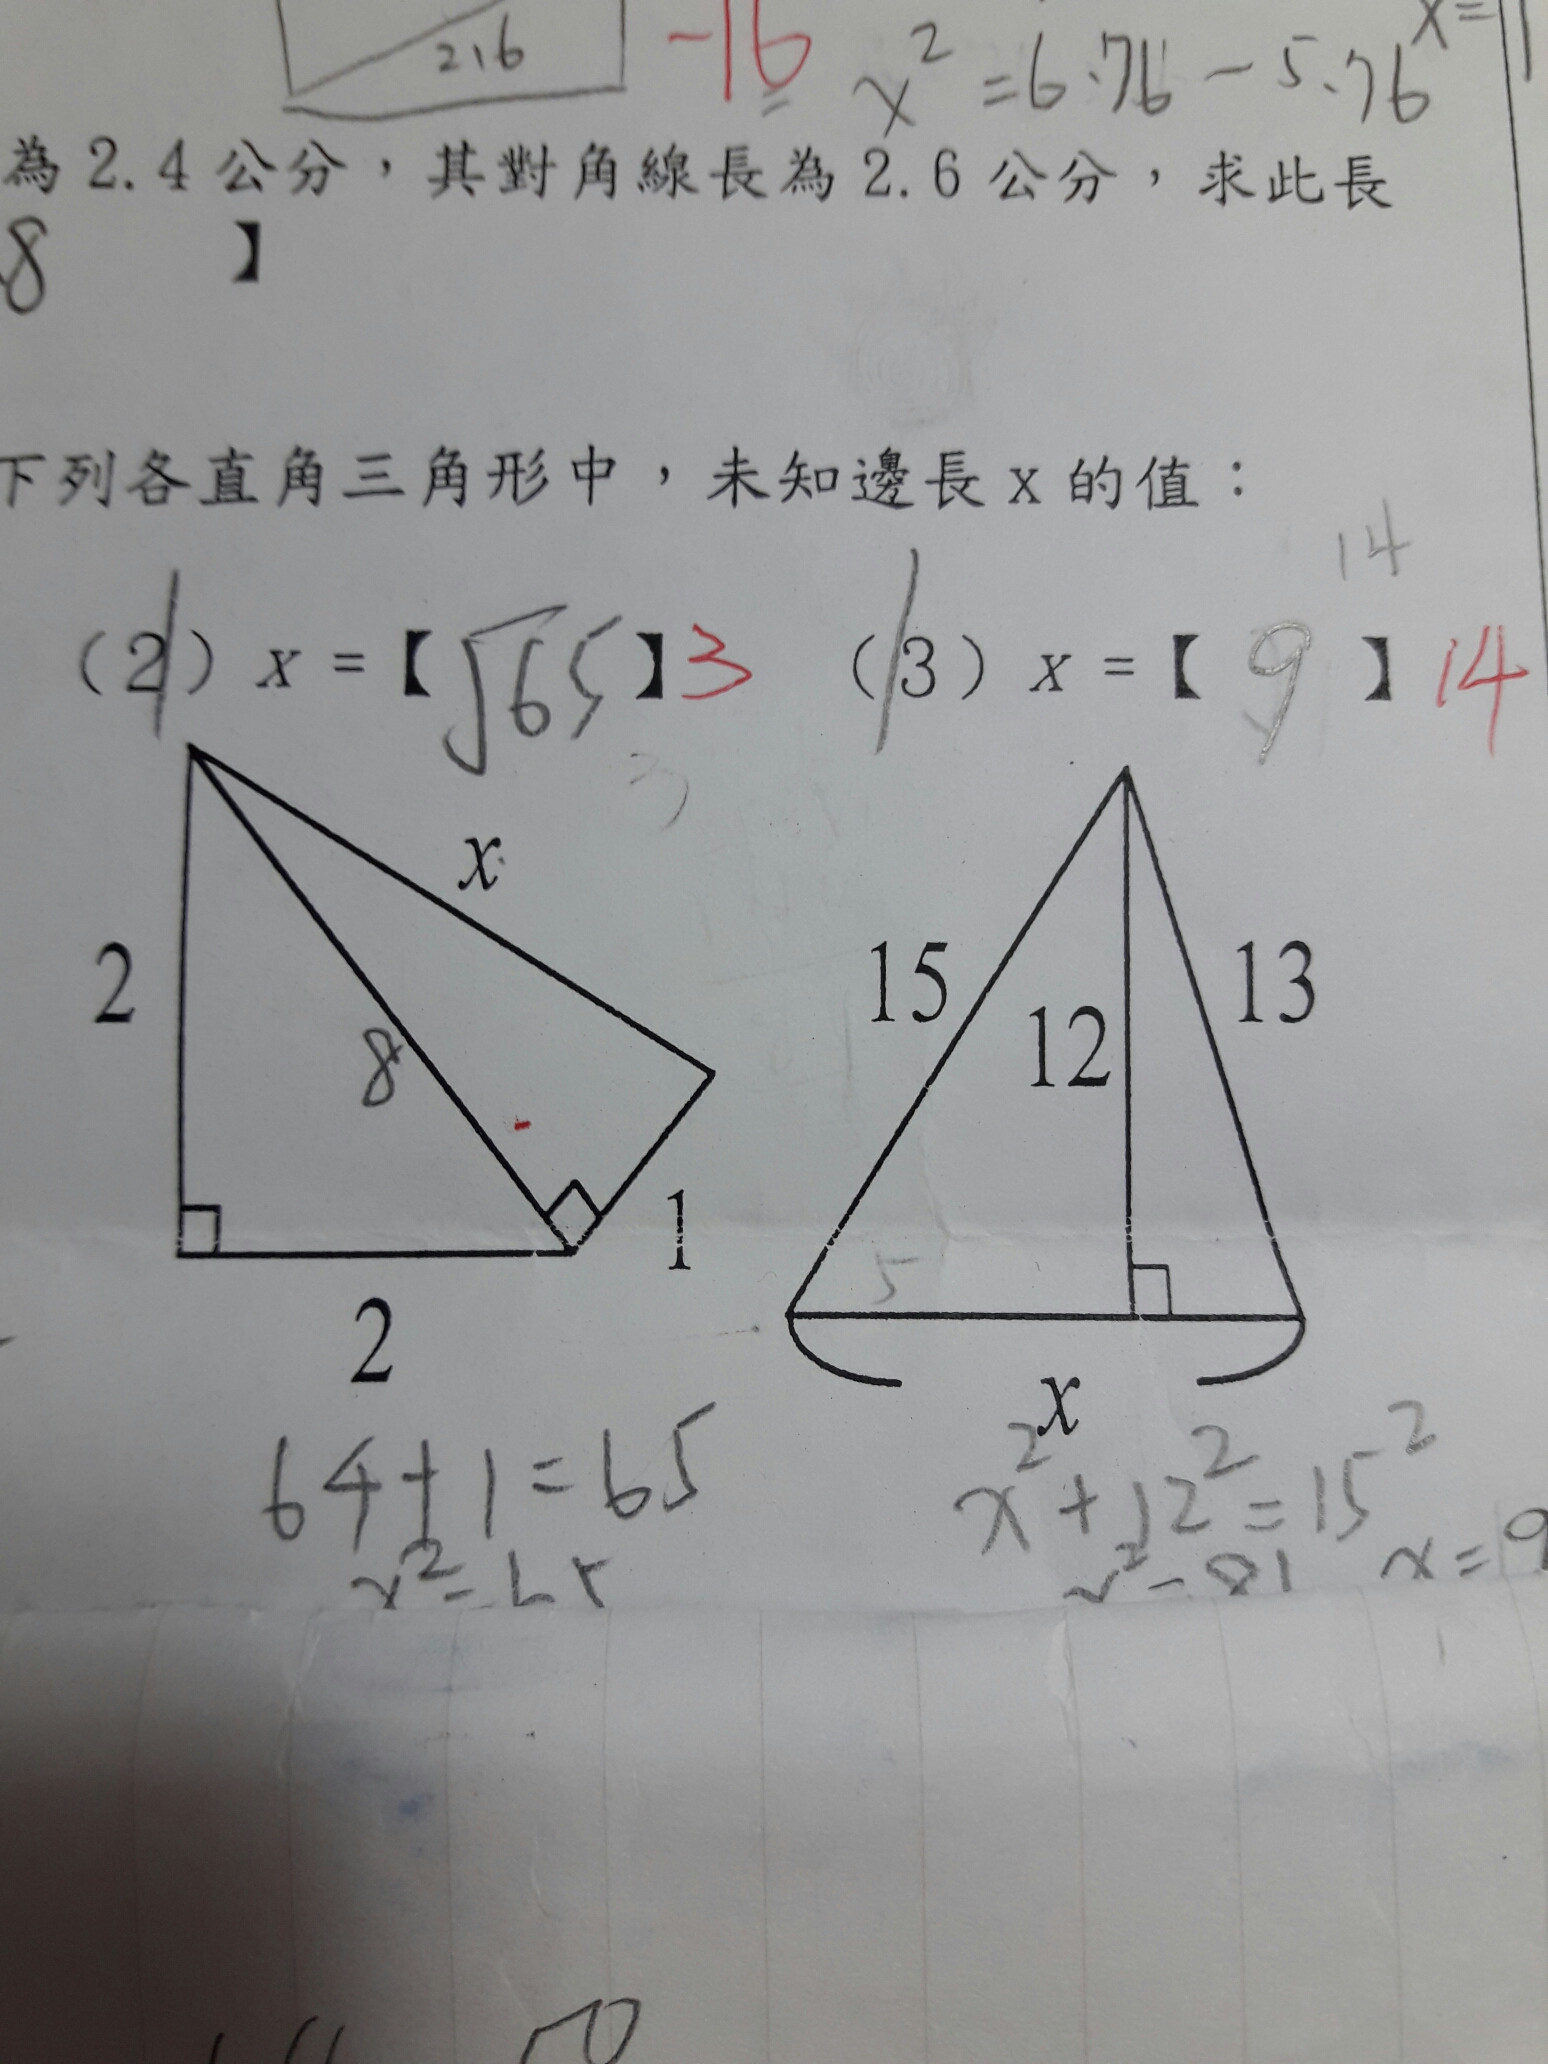 2.6
-16
x=1
x²=6.76-5.76
為 2.4 公分，其對角線長為 2.6 公分，求此長
8 】
下列各直角三角形中，未知邊長 x 的值：
14
(2) x =【√65】3 (3) x =【 9 】14
3
x
2
8
1
2
15
12
13
5
x
64+1=65
x²=65
x²+12²=15²
x²=81 x=9